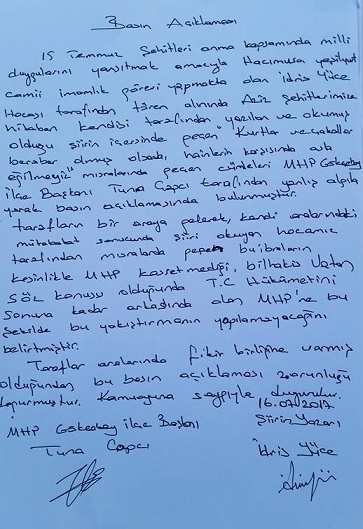 Basın Açıklaması
15 Temmuz Şehitleri anma kapsamında milli
duygularını yansıtmak amacıyla Hacımusa Yeşilyurt
camii imamlık görevi yapmakta olan İdris Yüce
Hocası tarafından, tören alanında Aziz Şehitlerimize
hitaben kendisi tarafından yazılan ve okumuş
olduğu şiirin içersinde geçen "Kurtlar ve çakallar
beraber olmuş olsada, hainlerin karşısında asla
eğilmeyiz" mısralarında geçen cümleleri MHP Gökçebey
ilçe Başkanı Tuna Çapcı tarafından yanlış algıla
yarak basın açıklamasında bulunmuştur.
tarafların bir araya gelerek, kendi aralarındaki
mütabakat sonucunda şiiri okuyan hocamız
tarafından mısralarda geçen bu ibrarların
kesinlikle MHP kasretmediği, bilhakis Vatan
söz konusu olduğunda T.C Hükümetini
sonuna kadar arkasında olan MHP'ne bu
şekilde bu yakıştırmanın yapılamayacağını
belirtmiştir.
Taraflar aralarında fikir birliğine varmış
olduğundan bu basın açıklaması zorunluğu
doğurmuştur. Kamuoyuna saygıyla duyurulur.
16.07.2017
MHP Gökçebey ilçe Başkanı Şiirin Yazarı
Tuna Çapcı İdris Yüce